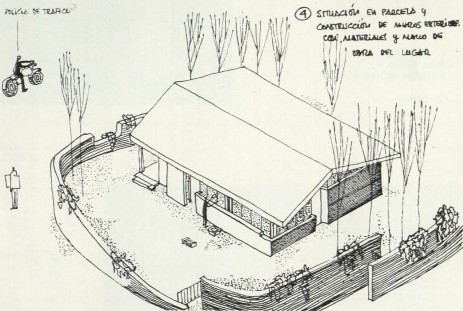 POLICIA DE TRAFICO
④ SITUACIÓN EN PARCELA Y
CONSTRUCCIÓN DE MUROS EXTERIORES
CON MATERIALES Y MANO DE
OBRA DEL LUGAR